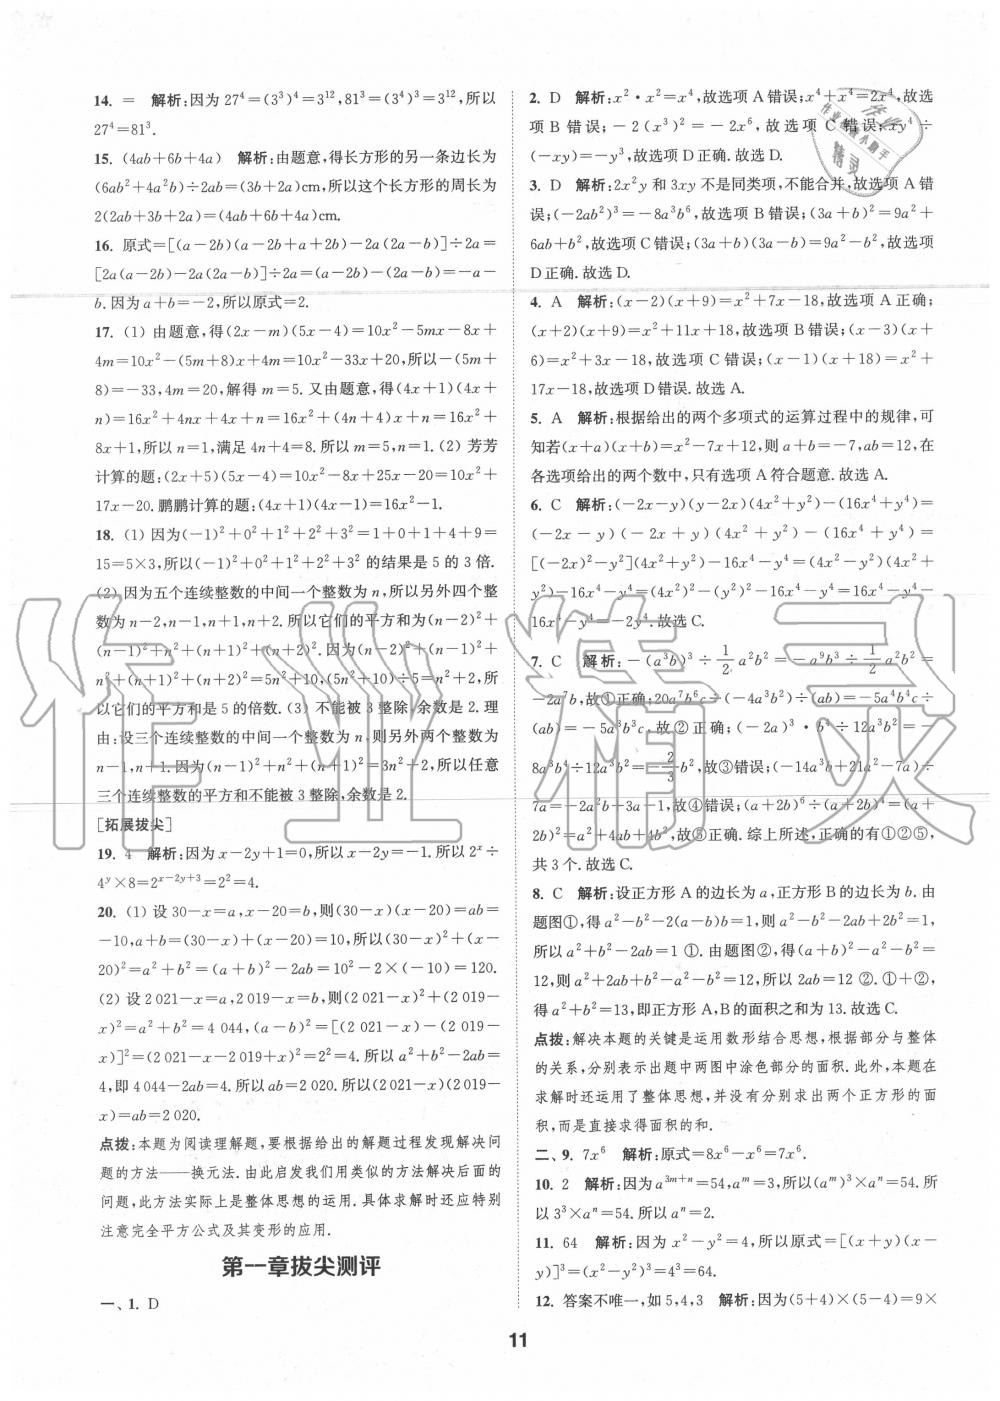 14. = 解析:因为27⁴=(3³)⁴=3¹²,81³=(3⁴)³=3¹²,所以
27⁴=81³.
15. (4ab+6b+4a) 解析:由题意,得长方形的另一条边长为
(6ab²+4a²b)÷2ab=(3b+2a)cm,所以这个长方形的周长为
2(2ab+3b+2a)=(4ab+6b+4a)cm.
16. 原式=[(a-2b)(a-2b+a+2b)-2a(2a-b)]÷2a=
[2a(a-2b)-2a(2a-b)]÷2a=(a-2b)-(2a-b)=-a-
b.因为a+b=-2,所以原式=2.
17. (1) 由题意,得(2x-m)(5x-4)=10x²-5mx-8x+
4m=10x²-(5m+8)x+4m=10x²-33x+20,所以-(5m+
8)=-33,4m=20,解得m=5.又由题意,得(4x+1)(4x+
n)=16x²+4nx+4x+n=16x²+(4n+4)x+n=16x²+
8x+1,所以n=1,满足4n+4=8.所以m=5,n=1.(2) 芳芳
计算的题:(2x+5)(5x-4)=10x²-8x+25x-20=10x²+
17x-20.鹏鹏计算的题:(4x+1)(4x-1)=16x²-1.
18. (1) 因为(-1)²+0²+1²+2²+3²=1+0+1+4+9=
15=5×3,所以(-1)²+0²+1²+2²+3²的结果是5的3倍.
(2)因为五个连续整数的中间一个整数为n,所以另外四个整
数为n-2,n-1,n+1,n+2.所以它们的平方和为(n-2)²+
(n-1)²+n²+(n+1)²+(n+2)².因为(n-2)²+(n-1)²+
n²+(n+1)²+(n+2)²=5n²+10,(5n²+10)÷5=n²+2,所
以它们的平方和是5的倍数.(3) 不能被3整除,余数是2.理
由:设三个连续整数的中间一个整数为n,则另外两个整数为
n-1,n+1.因为(n-1)²+n²+(n+1)²=3n²+2,所以任意
三个连续整数的平方和不能被3整除,余数是2.
[拓展拔尖]
19. 4 解析:因为x-2y+1=0,所以x-2y=-1.所以2ˣ÷
4ʸ×8=2ˣ⁻²ʸ⁺³=2²=4.
20. (1) 设30-x=a,x-20=b,则(30-x)(x-20)=ab=
-10,a+b=(30-x)+(x-20)=10,所以(30-x)²+(x-
20)²=a²+b²=(a+b)²-2ab=10²-2×(-10)=120.
(2) 设2 021-x=a,2 019-x=b,则(2 021-x)²+(2 019-
x)²=a²+b²=4 044,(a-b)²=[(2 021-x)-(2 019-
x)]²=(2 021-x-2 019+x)²=2²=4.所以a²+b²-2ab=
4,即4 044-2ab=4.所以ab=2 020.所以(2 021-x)(2 019-
x)=ab=2 020.
点拨:本题为阅读理解题,要根据给出的解题过程发现解决问
题的方法——换元法.由此启发我们用类似的方法解决后面的
问题,此方法实际上是整体思想的运用.具体求解时还应特别
注意完全平方公式及其变形的应用.
第一章拔尖测评
一、1. D
2. D 解析:x²·x²=x⁴,故选项A错误;x⁴+x⁴=2x⁴,故选
项B错误;-2(x³)²=-2x⁶,故选项C错误;xy⁴÷
(-xy)=-y³,故选项D正确.故选D.
3. D 解析:2x²y和3xy不是同类项,不能合并,故选项A错
误;(-2ab²)³=-8a³b⁶,故选项B错误;(3a+b)²=9a²+
6ab+b²,故选项C错误;(3a+b)(3a-b)=9a²-b²,故选项
D正确.故选D.
4. A 解析:(x-2)(x+9)=x²+7x-18,故选项A正确;
(x+2)(x+9)=x²+11x+18,故选项B错误;(x-3)(x+
6)=x²+3x-18,故选项C错误;(x-1)(x+18)=x²+
17x-18,故选项D错误.故选A.
5. A 解析:根据给出的两个多项式的运算过程中的规律,可
知若(x+a)(x+b)=x²-7x+12,则a+b=-7,ab=12,在
各选项给出的两个数中,只有选项A符合题意.故选A.
6. C 解析:(-2x-y)(y-2x)(4x²+y²)-(16x⁴+y⁴)=
(-2x-y)(-2x+y)(4x²+y²)-(16x⁴+y⁴)=
[(-2x)²-y²](4x²+y²)-16x⁴-y⁴=(4x²-y²)(4x²+
y²)-16x⁴-y⁴=(4x²)²-(y²)²-16x⁴-y⁴=16x⁴-y⁴-
16x⁴-y⁴=-2y⁴.故选C.
7. C 解析:-(a³b)³÷1/2a²b²=-a⁹b³÷1/2a²b²=
-2a⁷b,故①正确;20a⁷b⁶c÷(-4a³b²)÷(ab)=-5a⁴b⁴c÷
(ab)=-5a³b³c,故②正确;(-2a)³·b⁴÷12a³b²=-
8a³b⁴÷12a³b²=-2/3b²,故③错误;(-14a³b+21a²-7a)÷
7a=-2a²b+3a-1,故④错误;(a+2b)⁶÷(a+2b)⁴=(a+
2b)²=a²+4ab+4b²,故⑤正确.综上所述,正确的有①②⑤,
共3个.故选C.
8. C 解析:设正方形A的边长为a,正方形B的边长为b.由
题图①,得a²-b²-2(a-b)b=1,则a²-b²-2ab+2b²=1,
所以a²+b²-2ab=1 ①.由题图②,得(a+b)²-a²-b²=
12,则a²+2ab+b²-a²-b²=12,所以2ab=12 ②.①+②,
得a²+b²=13,即正方形A,B的面积之和为13.故选C.
点拨:解决本题的关键是运用数形结合思想,根据部分与整体
的关系,分别表示出题中两图中涂色部分的面积.此外,本题在
求解时还运用了整体思想,并没有分别求出两个正方形的面
积,而是直接求得面积的和.
二、9. 7x⁶ 解析:原式=8x⁶-x⁶=7x⁶.
10. 2 解析:因为a³ᵐ⁺ⁿ=54,aᵐ=3,所以(aᵐ)³×aⁿ=54.所
以3³×aⁿ=54.所以aⁿ=2.
11. 64 解析:因为x²-y²=4,所以原式=[(x+y)(x-
y)]³=(x²-y²)³=4³=64.
12. 答案不唯一,如5,4,3 解析:因为(5+4)×(5-4)=9×
11
作业精灵